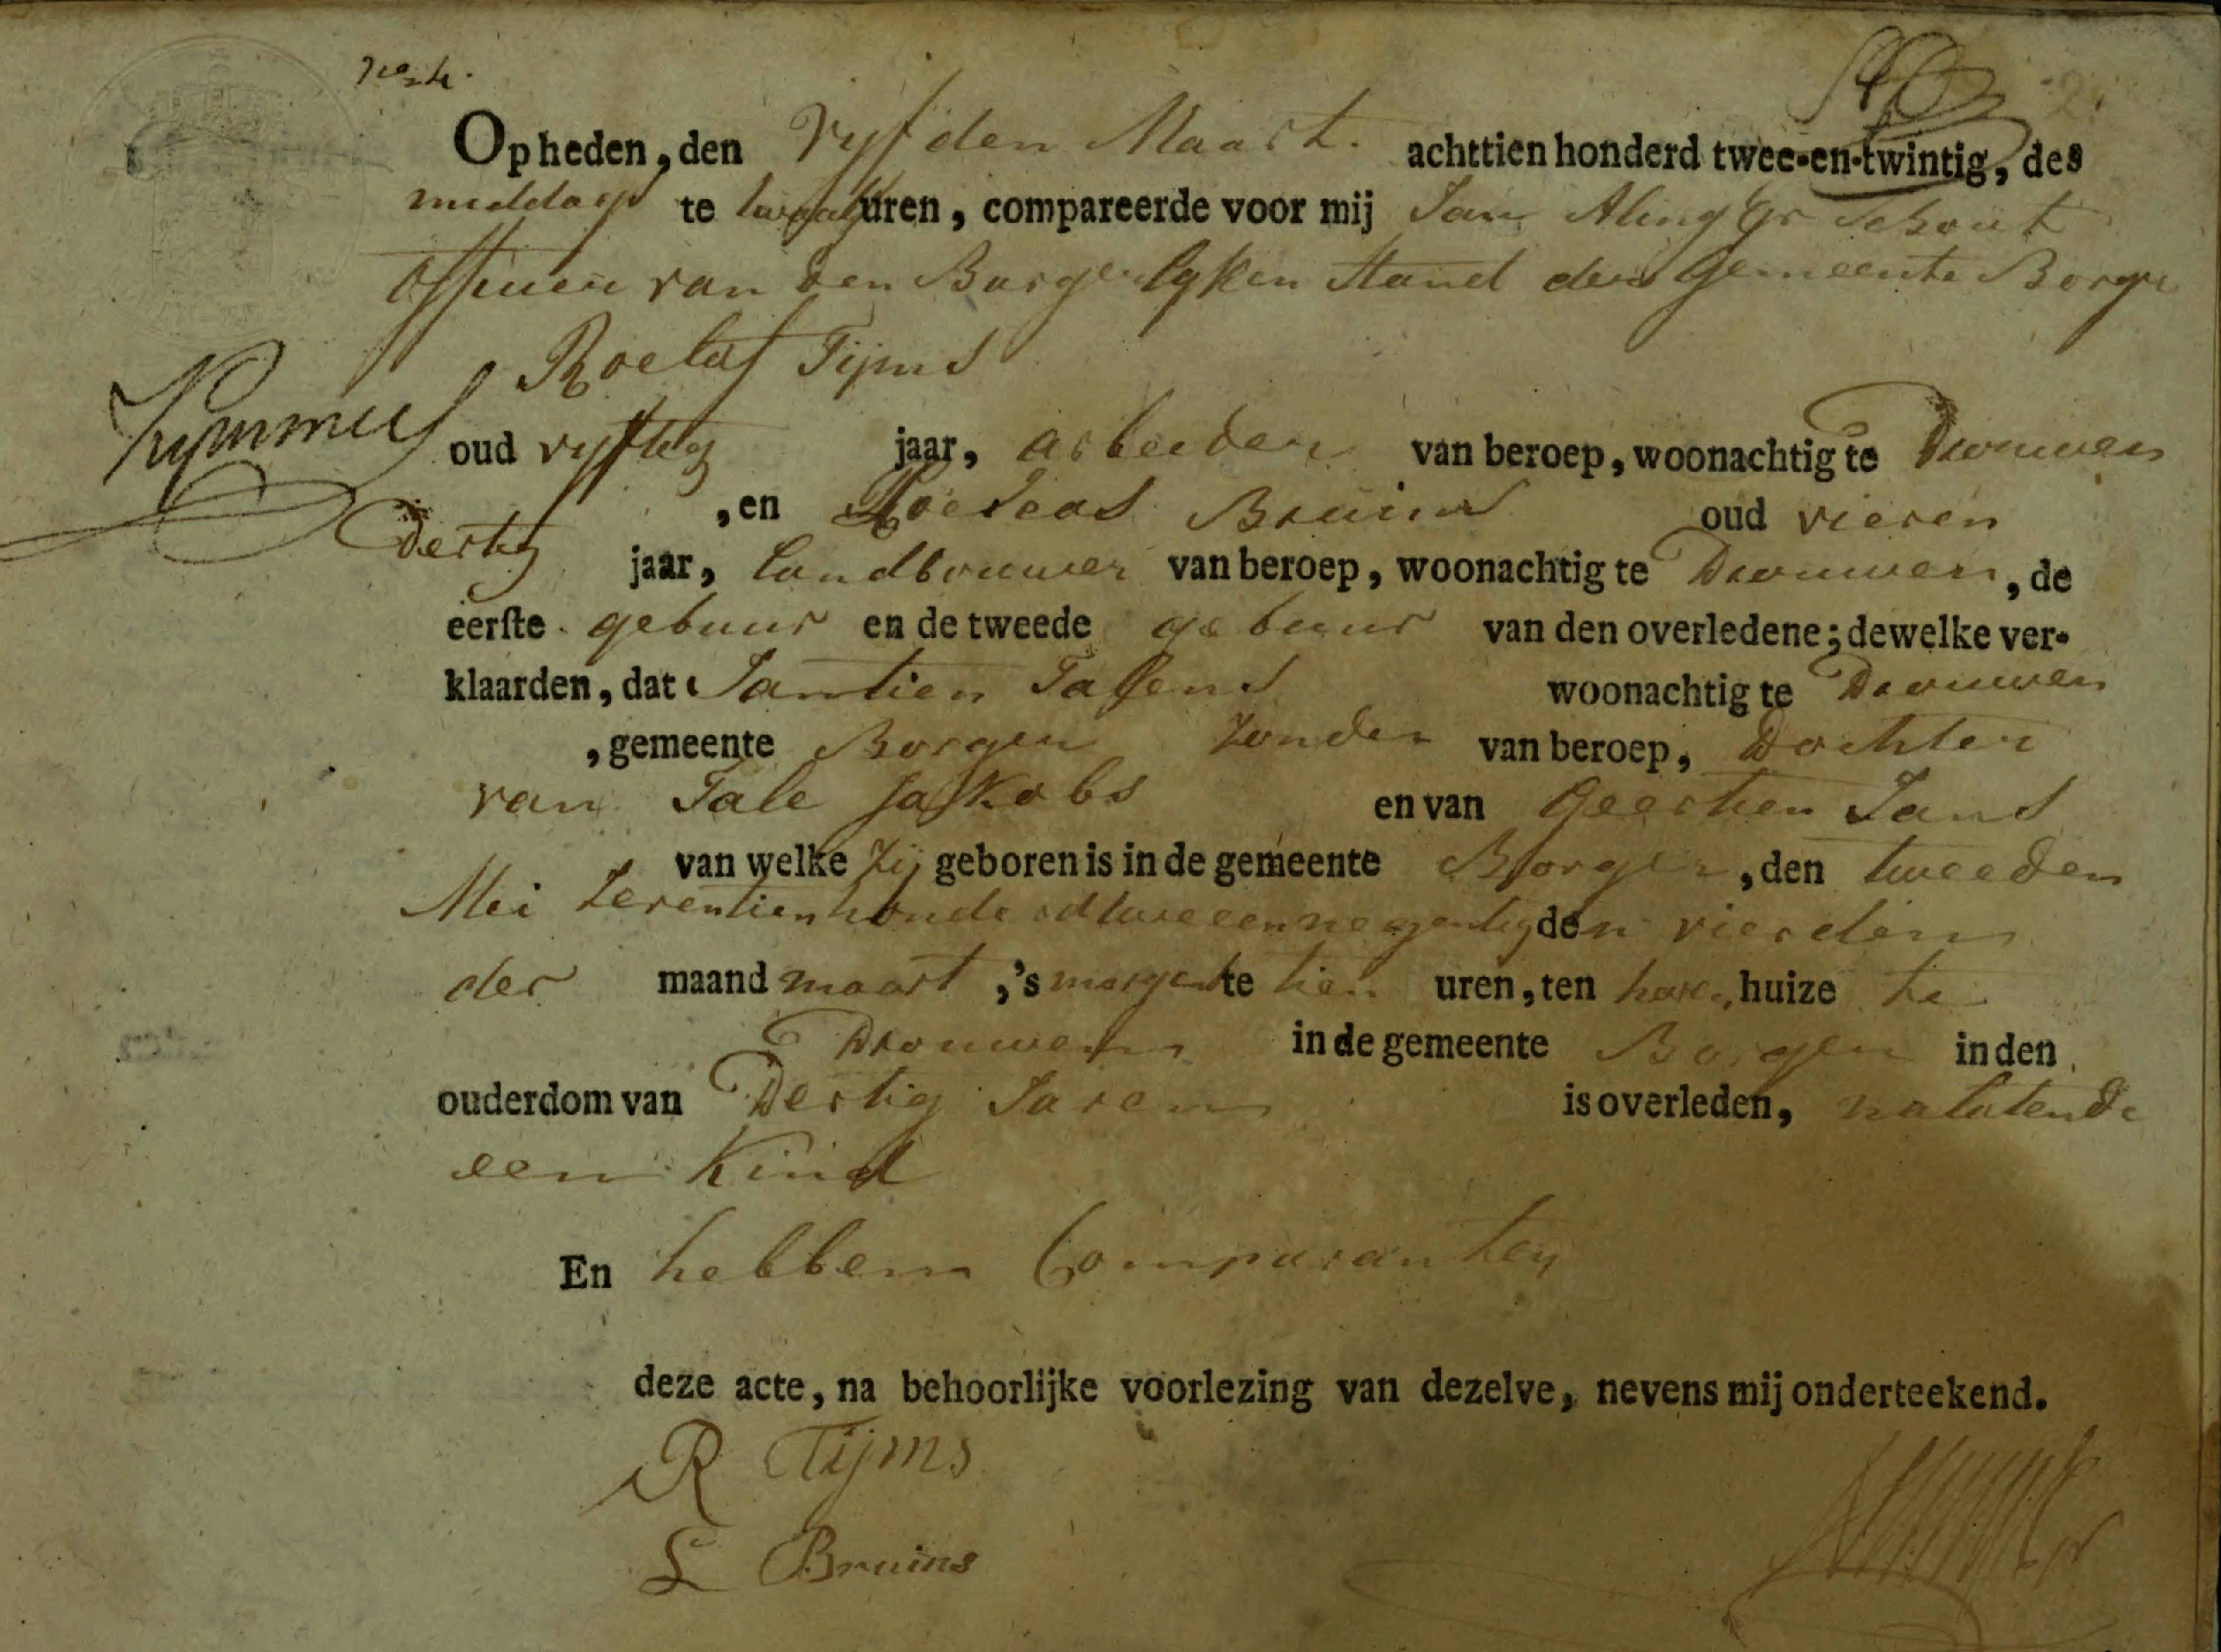 No 4.
Op heden, den Vyfden Maart. achttien honderd twee-en-twintig, des
middags te twaalf uren, compareerde voor mij Jan Aling Gr Schout
Officier van den Burgerlyken Stand der Gemeente Borger
Roelof Tijms
oud vyftig jaar, arbeeder van beroep, woonachtig te Drouwen
, en Bruins oud vieren
dertig jaar, landbouwer van beroep, woonachtig te Drouwen, de
eerste gebuur en de tweede gebuur van den overledene; dewelke ver-
klaarden, dat Jantien Talens woonachtig te Drouwen
, gemeente Borger zonder van beroep, Dochter
van Tale Jakobs en van Geertien Jans
van welke zij geboren is in de gemeente Borger, den tweeden
Mei zeventienhonderd twee en negentig den vierden
der maand maart, 's morgens te tien uren, ten haren huize te
Drouwen in de gemeente Borger in den
ouderdom van Dertig Jaren is overleden, nalatende
een Kind
En hebben Comparanten
deze acte, na behoorlijke voorlezing van dezelve, nevens mij onderteekend.
R Tijms
L Bruins